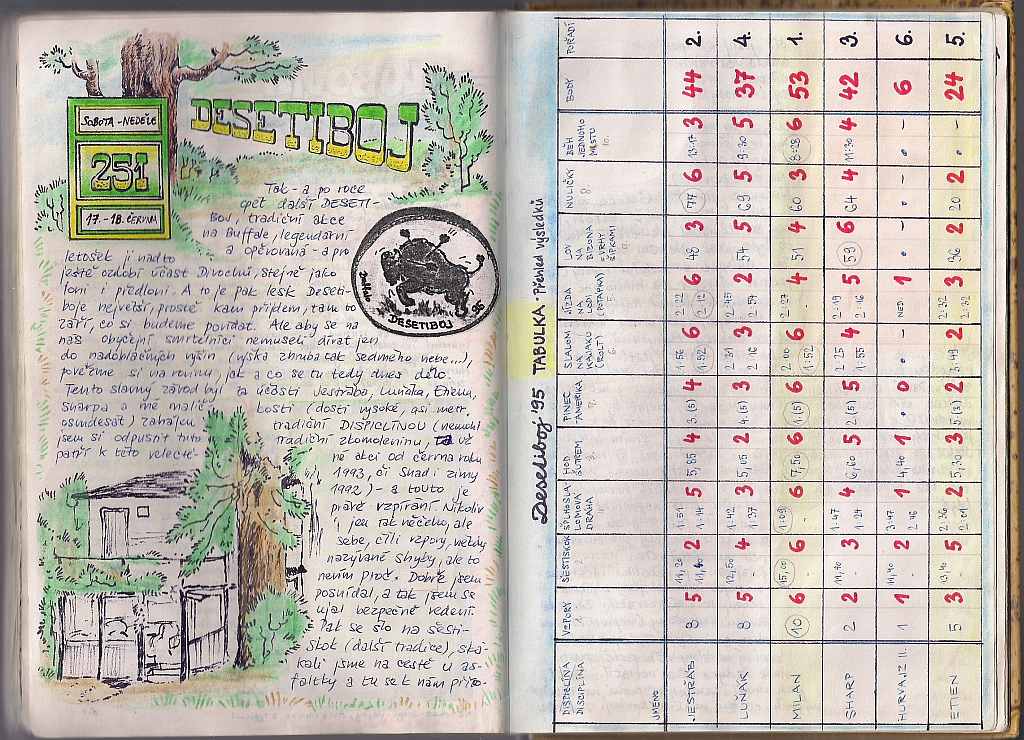 SOBOTA - NEDĚLE
251
17. - 18. ČERVNA
DESETIBOJ
Tak - a po roce
opět další DESETI-
BOJ, tradiční akce
na Buffale, legendární
a opěvovaná - a pro
letošek ji nadto
ještě ozdobí účast Divochů, stejně jako
loni i předloni. A to je pak lesk Deseti-
boje největší, prostě kam přijdem, tam to
září, co si budeme povídat. Ale aby se na
nás obyčejní smrtelníci nemuseli dívat jen
do nadoblačných výšin (výška zhruba tak sedmého nebe...),
povězme si na rovinu, jak a co se tu tedy dnes dělo.
Tento slavný závod byl za účasti Jestřába, Luňáka, Etiena,
Sharpa a mé malič-
kosti (dosti vysoké, asi metr
osmdesát) zahájen
tradiční DISPICLÍNOU (nemohl
jsem si odpustit tuto
tradiční zkomoleninu, ta už
patří k této velecté-
né akci od června roku
1993, či snad i zimy
1992) - a touto je
pravé vzpírání. Nikoliv
jen tak něčeho, ale
sebe, čili vzpory, někdy
nazývané shyby, ale to
nevím proč. Dobře jsem
posnídal, a tak jsem se
ujal bezpečně vedení.
Pak se šlo na šesti-
skok (další tradice), ská-
kali jsme na cestě u as-
faltky a tu se k nám přiřo-
BUFFALO 95
DESETIBOJ
Desetiboj '95 TABULKA - Přehled výsledků
DISPICLÍNA DISCIPLÍNA JMÉNO VZPORY 1. ŠESTISKOK 2. ŠPLHOSLALOMOVÁ DRÁHA HOD ŠUTREM PINEC -AMERIKA SLALOM NA KAJAKU (BOLT) JÍZDA NA LODI (PSTAPKA) LOV NA BIZONA S PRHY ŠIPKAMI NULIČKY 8. BĚH JEDNOHO MRSTU 10. BODY POŘADÍ
JESTŘÁB 8 5 11,20 2 1:51 1:14 5 5,85 4 3.(5) 4 1:56 1:52 6 2:22 2:12 6 48 3 77 6 13:17 3 44 2.
LUŇÁK 8 5 12,50 4 1:42 1:37 3 5,05 2 4.(5) 3 2:31 2:16 3 2:45 2:54 2 54 5 69 5 9:20 5 37 4.
MILAN 10 6 15,00 - 6 1:09 - 6 7,50 6 1.(5) 6 2:00 1:52 6 2:27 - 4 51 4 60 3 8:28 6 53 1.
SHARP 2 2 11,70 - 3 1:47 1:24 4 6,60 5 2(5) 5 2:25 1:55 4 2:19 2:16 5 59 6 64 4 11:30 4 42 3.
HURVAJZ II. 1 1 11,40 - 2 3:47 2:46 1 4,40 1 • 0 • - NED. 1 • - • - • - 6 6.
ETIEN 5 3 13,40 - 5 2:36 2:01 2 5,30 3 5(3) 2 3:49 2 2:32 2:32 3 36 2 20 2 • - 24 5.